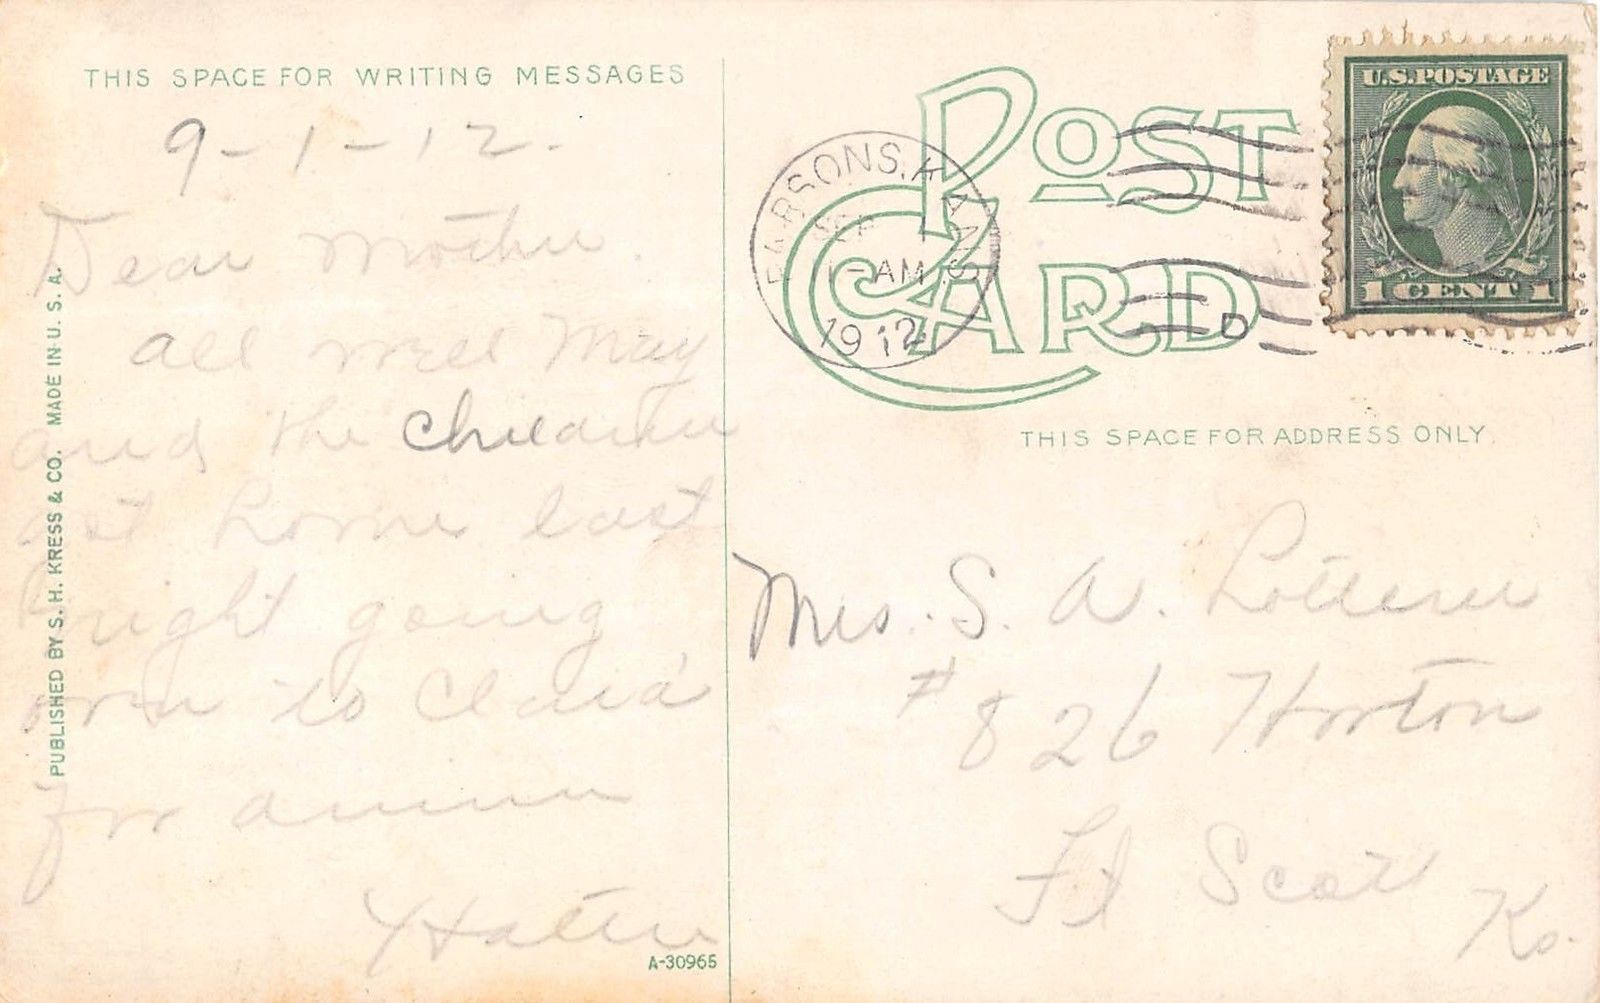 THIS SPACE FOR WRITING MESSAGES
9-1-12.
Dear Mother.
all well May
and the children
at home last
night going
over to Clara's
for dinner
Hattie
PUBLISHED BY S. H. KRESS & CO. MADE IN U. S. A.
A-30965
POST
CARD
PARSONS, KANS.
SEP 1
1-AM
1912
D
U.S. POSTAGE
1 CENT 1
THIS SPACE FOR ADDRESS ONLY.
Mrs. S. A.
# 826 Horton
Ft Scott
Ks.